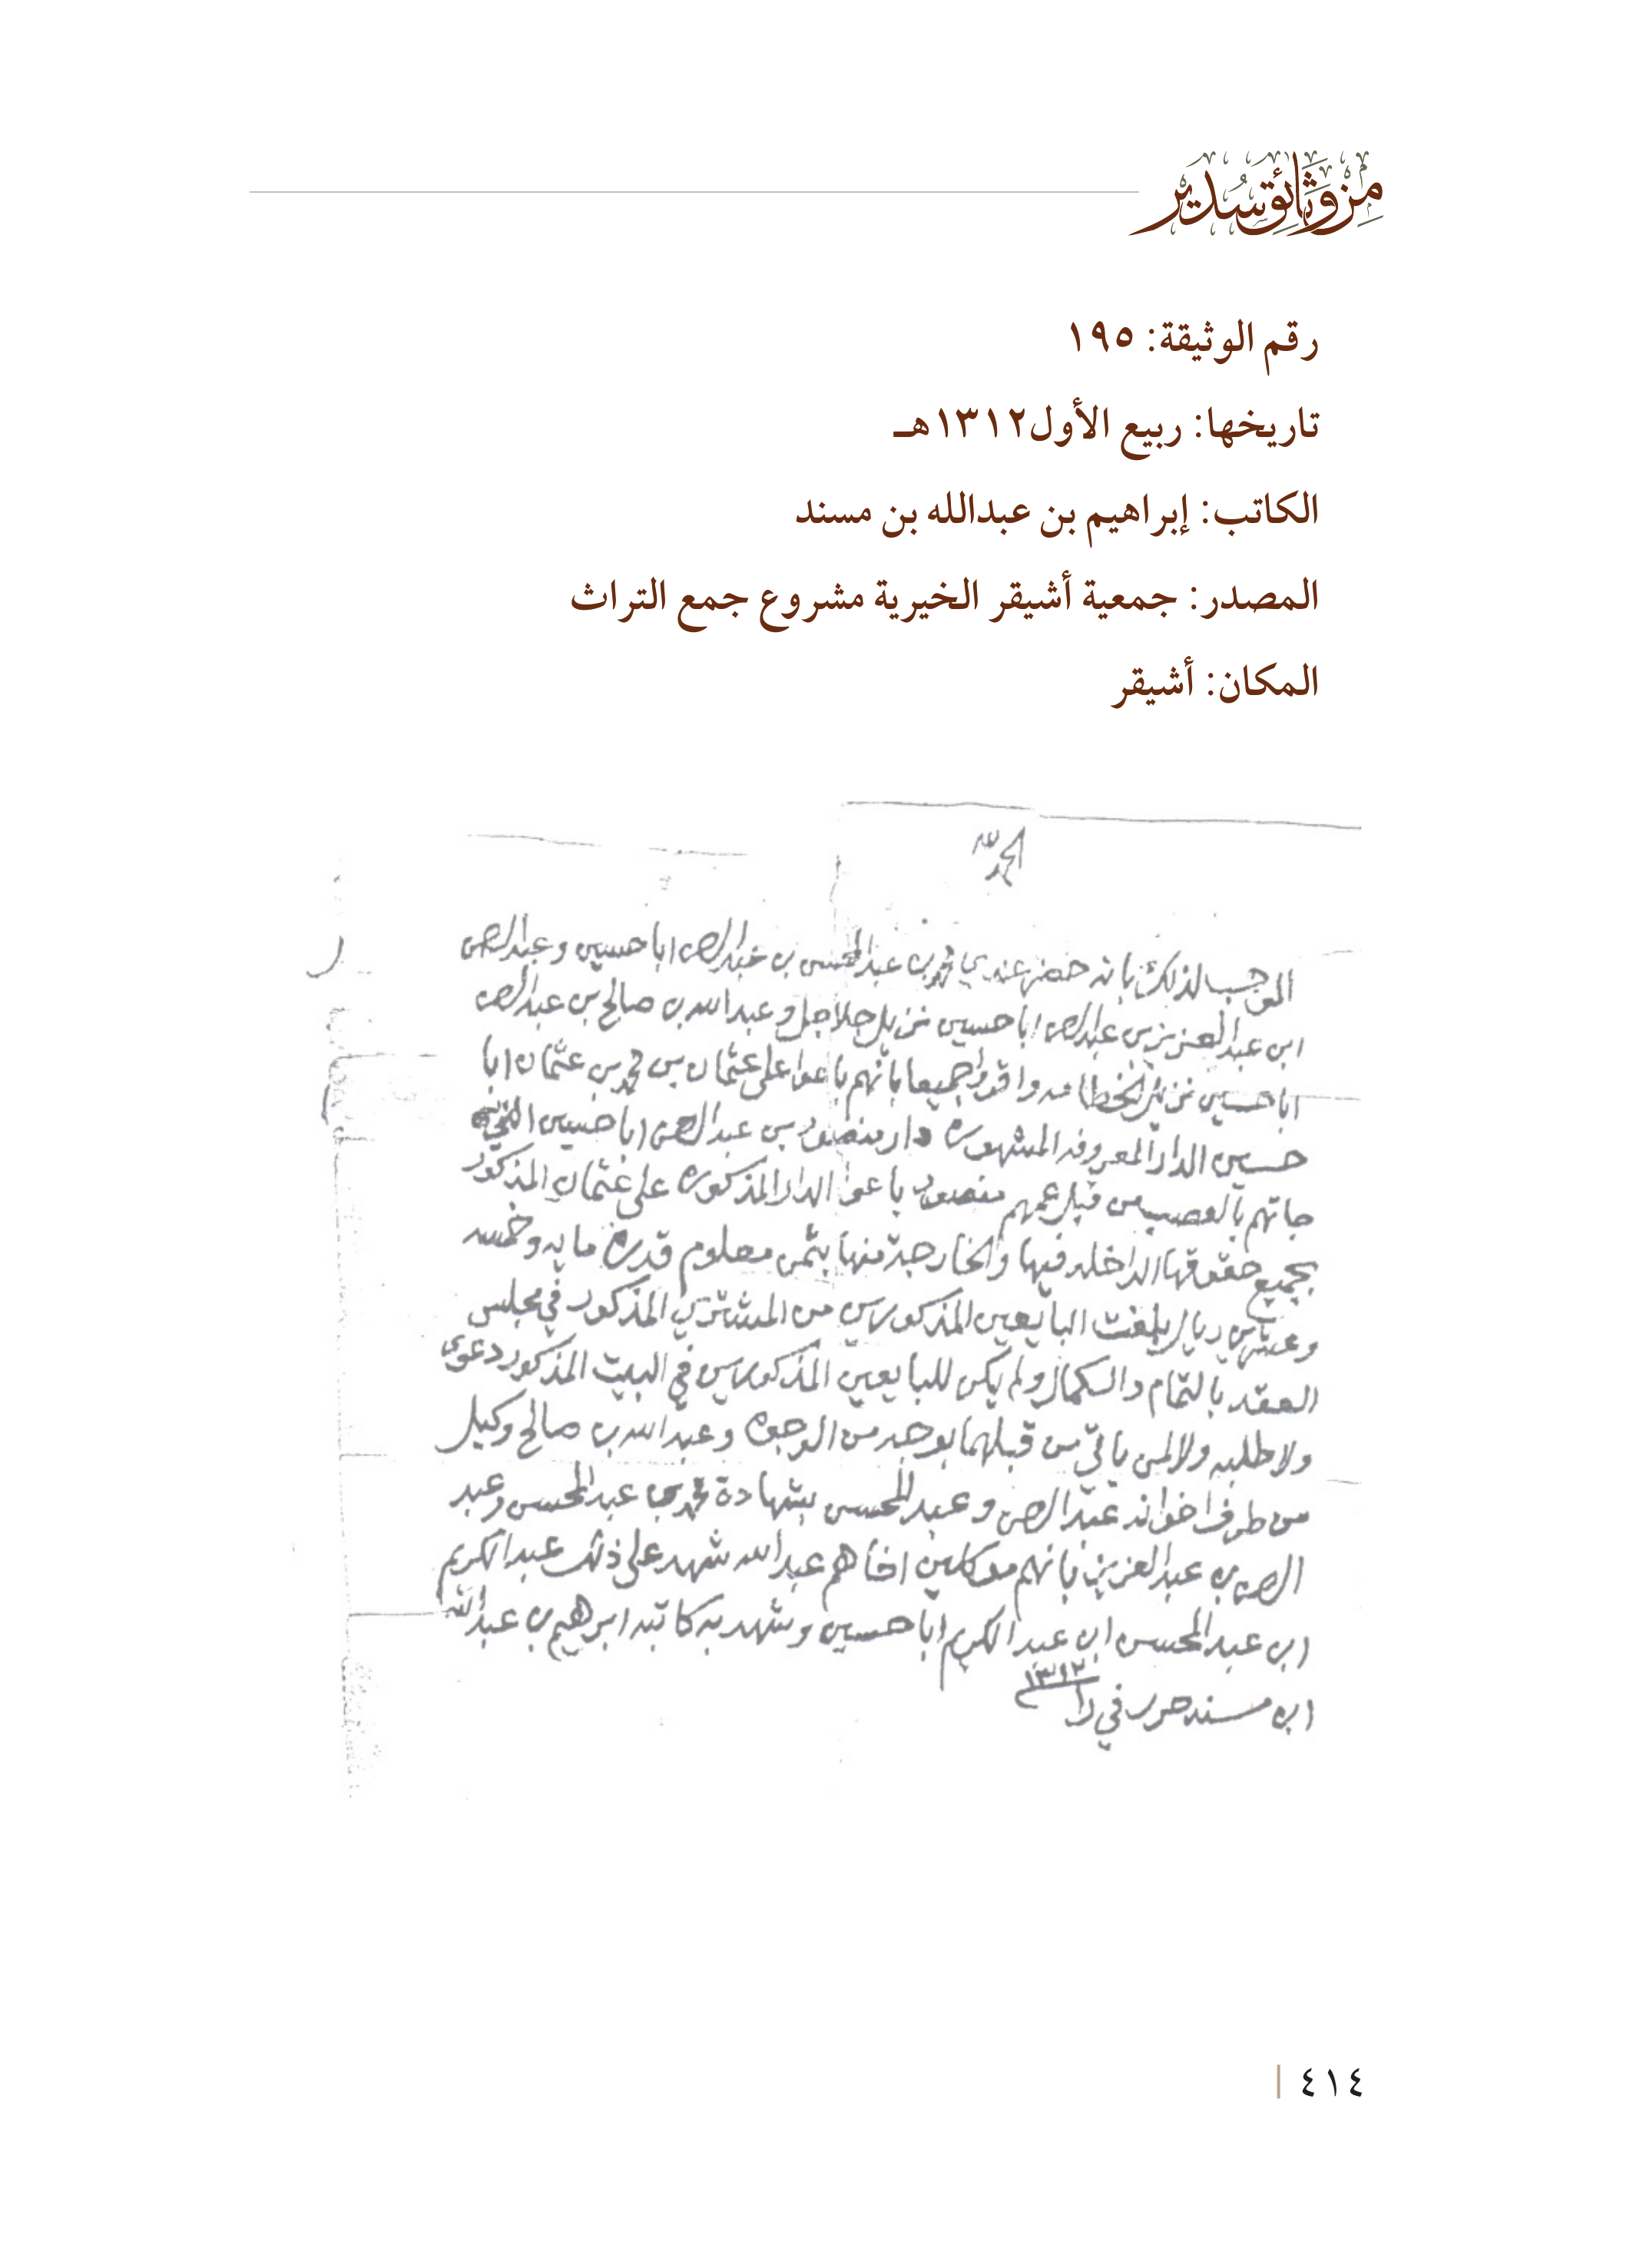 من وثائق سدير
رقم الوثيقة: ١٩٥
تاريخها: ربيع الأول١٣١٢هـ
الكاتب: إبراهيم بن عبدالله بن مسند
المصدر: جمعية أشيقر الخيرية مشروع جمع التراث
المكان: أشيقر
الحمد لله
الموجب لذلك بانه حضر عندي محمد بن عبدالمحسن بن عبدالرحمن اباحسين وعبدالرحمن
ابن عبدالعزيز بن عبدالرحمن اباحسين نزيل جلاجل وعبدالله بن صالح بن عبدالرحمن
اباحسين نزيل الخطامه واقروا جميعا بانهم باعوا على عثمان بن محمد بن عثمان ابا
حسين الدار المعروفه المشهوره دار منصور بن عبدالرحمن اباحسين
جاتهم بالعصب من قبل عمهم منصور باعوا الدار المذكوره على عثمان المذكور
بجميع حقوقها الداخله فيها والخارجة منها بثمن معلوم قدره مايه وخمسه
وعشرين ريال بلغت البايعين المذكورين من المشتري المذكور في مجلس
العقد بالتمام والكمال ولم يكن للبايعين المذكورين في البيت المذكور دعوى
ولا طلبه ولا لمن ياتي من قبلهما بوجه من الوجوه وعبدالله بن صالح وكيل
من طرف اخوانه عبدالرحمن وعبدالمحسن بشهادة محمد بن عبدالمحسن وعبد
الرحمن بن عبدالعزيز بانهم موكلين اخاهم عبدالله شهد على ذلك عبدالكريم
ابن عبدالمحسن ابن عبدالكريم اباحسين وشهد به كاتبه ابرهيم بن عبدالله
ابن مسند حرر في را ١٣١٢
٤١٤